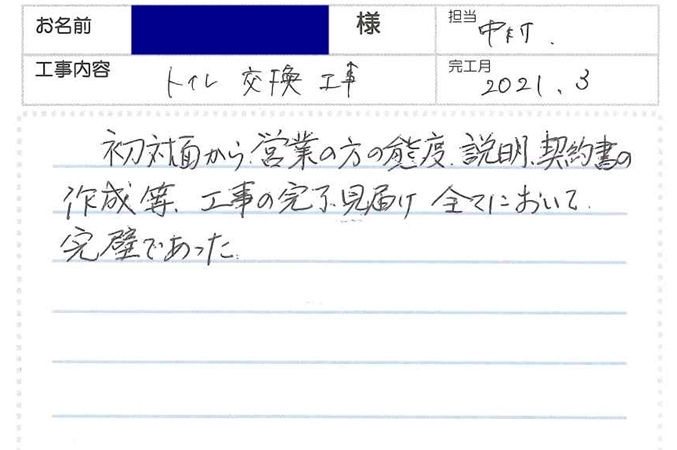 お名前 様 担当 中村.
工事内容 トイレ 交換 工事 完工月 2021.3
初対面から、営業の方の態度、説明、契約書の
作成等、工事の完了見届け 全てにおいて、
完璧であった。